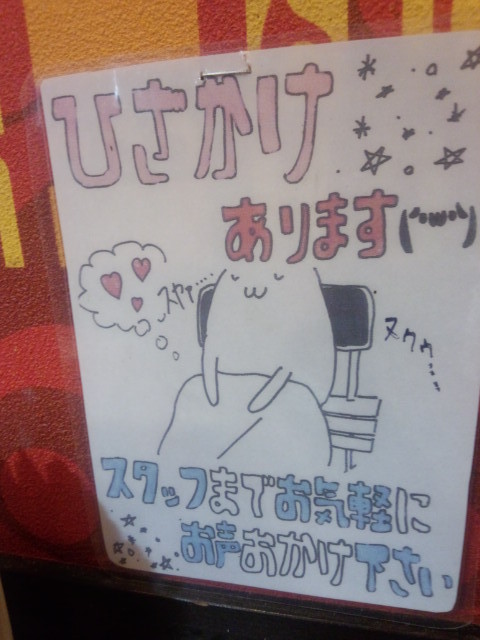 ひざかけ
あります(´・ω・`)
スヤァ…
ヌクゥ…
スタッフまでお気軽に
お声おかけ下さい